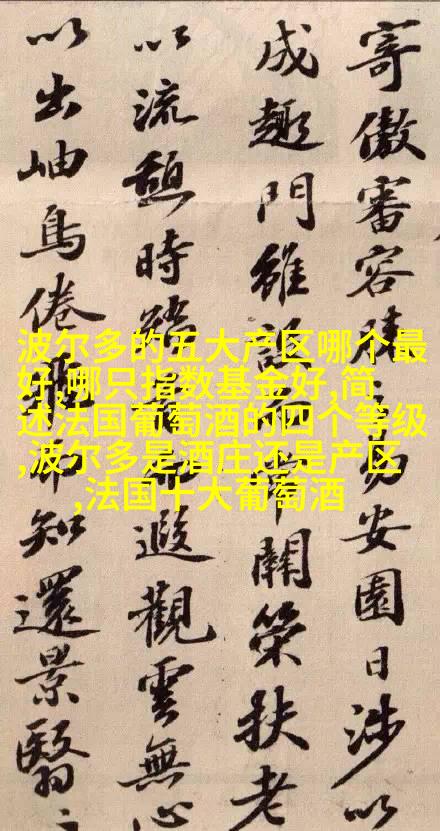 寄傲審容膝易安園日涉以
成趣門雖設常關策扶老
以流憩時遐觀雲無心
以出岫鳥倦飛而知還景翳
波尔多的五大产区哪个最
好,哪只指数基金好,简
述法国葡萄酒的四个等级
,波尔多是酒庄还是产区
,法国十大葡萄酒